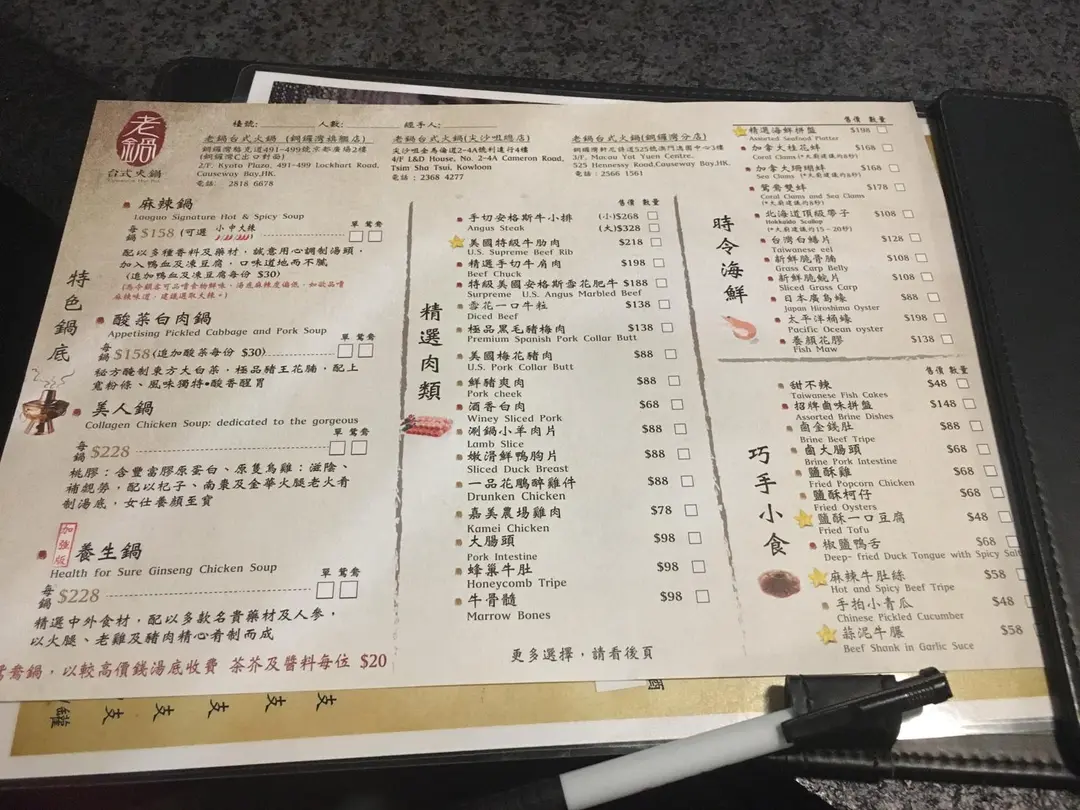 老鍋
台式火鍋
檯號: 人數: 經手人:
老鍋台式火鍋 (銅鑼灣旗艦店)
銅鑼灣駱克道491-499號京都廣場2樓
(銅鑼灣C出口對面)
2/F, Kyoto Plaza, 491-499 Lockhart Road,
Causeway Bay,HK.
電話: 2818 6678
老鍋台式火鍋(尖沙咀總店)
尖沙咀金馬倫道2-4A號利達行4樓
4/F L&D House, No. 2-4A Cameron Road,
Tsim Sha Tsui, Kowloon
電話：2368 4277
老鍋台式火鍋(銅鑼灣分店)
3/F, Macau Yat Yuen Centre,
525 Hennessy Road,Causeway Bay,HK.
電話：2566 1561
特色鍋底
麻辣鍋
Laoguo Signature Hot & Spicy Soup
每鍋 $158 (可選 小中大辣 單 鴛鴦
配以多種香料及藥材，誠意用心調制湯頭，
加入鴨血及凍豆腐，口味道地而不膩
(追加鴨血及凍豆腐每份 $30)
酸菜白肉鍋
Appetising Pickled Cabbage and Pork Soup
每鍋 $158(追加酸菜每份 $30) 單 鴛鴦
秘方醃制東方大白菜，極品豬王花腩，配上
寬粉條、風味獨特•酸香醒胃
美人鍋
Collagen Chicken Soup: dedicated to the gorgeous
每鍋 $228 單 鴛鴦
桃膠：含豐富膠原蛋白、原隻烏雞：滋陰、
補親勞，配以杞子、南棗及金華火腿老火肴
制湯底，女仕養顏至寶
加強版
養生鍋
Health for Sure Ginseng Chicken Soup
每鍋 $228 單 鴛鴦
精選中外食材，配以多款名貴藥材及人參，
以火腿、老雞及豬肉精心肴制而成
鴛鴦鍋，以較高價錢湯底收費 茶芥及醬料每位 $20
精選肉類
售價 數量
手切安格斯牛小排 (小)$268
Angus Steak (大)$328
美國特級牛肋肉 $218
U.S. Supreme Beef Rib
精選手切牛肩肉 $198
Beef Chuck
特級美國安格斯雪花肥牛 $188
Surpreme U.S. Angus Marbled Beef
雪花一口牛粒 $138
Diced Beef
極品黑毛豬梅肉 $138
Premium Spanish Pork Collar Butt
美國梅花豬肉 $88
U.S. Pork Collar Butt
鮮豬爽肉 $88
Pork cheek
酒香白肉 $68
Winey Sliced Pork
涮鍋小羊肉片 $88
Lamb Slice
嫩滑鮮鴨胸片 $88
Sliced Duck Breast
一品花鵰醉雞件 $88
Drunken Chicken
嘉美農場雞肉 $78
Kamei Chicken
大腸頭 $98
Pork Intestine
蜂巢牛肚 $98
Honeycomb Tripe
牛骨髓 $98
Marrow Bones
更多選擇，請看後頁
時令海鮮
售價 數量
精選海鮮拼盤 $198
Assorted Seafood Platter
加拿大桂花蚌 $168
加拿大珊瑚蚌 $168
鴛鴦雙蚌 $178
Coral Clams and Sea Clams
北海道頂級帶子 $108
Hokkaido Scallop
台灣白鱔片 $128
Taiwanese eel
新鮮脆骨腩 $108
Grass Carp Belly
新鮮脆鯇片 $108
Sliced Grass Carp
日本廣島蠔 $88
Japan Hiroshima Oyster
太平洋桶蠔 $198
Pacific Ocean oyster
養顏花膠 $138
Fish Maw
巧手小食
售價 數量
甜不辣 $48
Taiwanese Fish Cakes
招牌鹵味拼盤 $148
Assorted Brine Dishes
鹵金錢肚 $88
Brine Beef Tripe
鹵大腸頭 $68
Brine Pork Intestine
鹽酥雞 $68
Fried Popcorn Chicken
鹽酥柯仔 $68
Fried Oysters
鹽酥一口豆腐 $48
Fried Tofu
椒鹽鴨舌 $68
Deep- fried Duck Tongue with Spicy Salt
麻辣牛肚絲 $58
Hot and Spicy Beef Tripe
手拍小青瓜 $48
Chinese Pickled Cucumber
蒜泥牛𦟌 $58
Beef Shank in Garlic Suce
罐 支 支 支 支 支